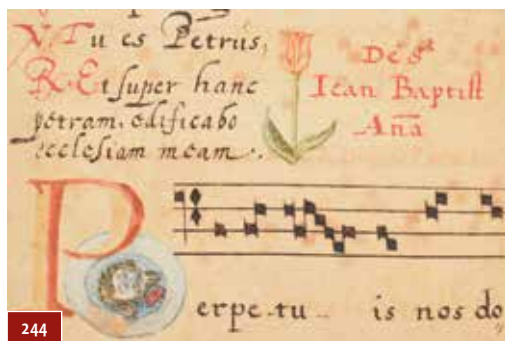 V. Tu es Petrus,
R. Et super hanc
petram. edificabo
ecclesiam meam.
De St
Iean Baptist
Aña
Perpe-tu-is nos do
244